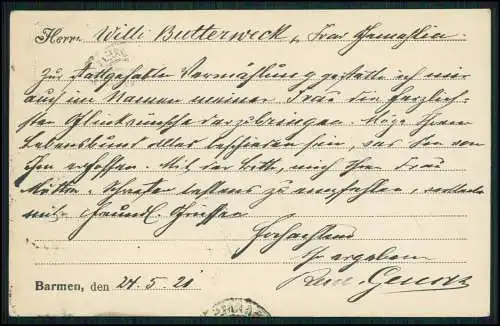 Herrn Willi Butterweck, Frau Gemahlin.
Zur stattgehabten Vermählung gestatte ich mir
auch im Namen meiner Frau die herzlich-
sten Glückwünsche darzubringen. Möge Ihrem
Lebensbund alles beschieden sein, was Sie von
Ihm erhoffen. Mit der Bitte, mich Ihrer Frau
Mutter, bestens zu empfehlen,
mit freundl. Grüssen
Hochachtend
Ihr ergebener
Barmen, den 24.5.21